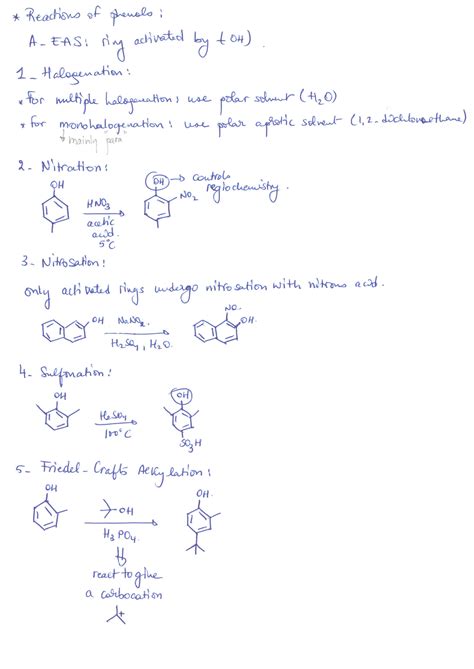 * Reactions of phenols:
A- EAS: ring activated by (OH)
1- Halogenation:
* For multiple halogenation: use polar solvent (H2O)
* For monohalogenation: use polar aprotic solvent (1,2-dichloroethane)
mainly para
2- Nitration:
OH
HNO3
acetic
acid.
5°C
OH → controls
regiochemistry.
NO2
3- Nitrosation:
only activated rings undergo nitrosation with nitrous acid.
OH
NaNO2.
H2SO4, H2O.
NO.
OH.
4- Sulfonation:
OH
H2SO4
100°C
OH
SO3H
5- Friedel-Crafts Alkylation:
OH
OH
H3PO4.
OH.
react to give
a carbocation
+